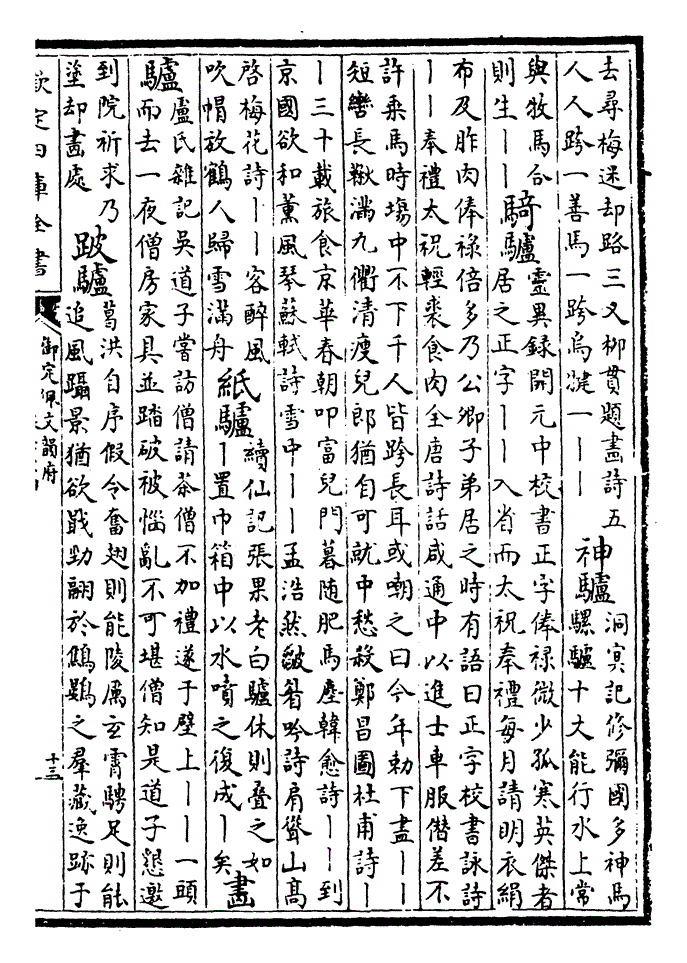 去尋梅迷却路三又柳貫題畫詩五
人人跨一善馬一跨烏犍一丨丨
神驢
洞冥記修彌國多神馬
騾驢十丈能行水上常
與牧馬合
則生丨丨
騎驢
靈異録開元中校書正字俸禄微少孤寒英傑者
居之正字丨丨入省而太祝奉禮每月請明衣絹
布及胙肉俸禄倍多乃公卿子弟居之時有語曰正字校書詠詩
丨丨奉禮太祝輕裘食肉全唐詩話咸通中以進士車服僭差不
許乗馬時塲中不下千人皆跨長耳或嘲之曰今年勅下盡丨丨
短轡長鞦滿九衢清瘦兒郎猶自可就中愁殺鄭昌圖杜甫詩丨
丨三十載旅食京華春朝叩富兒門暮随肥馬塵韓愈詩丨丨到
京國欲和薰風琴蘇軾詩雪中丨丨孟浩然皺眉吟詩肩聳山髙
啓梅花詩丨丨客醉風
吹帽放鶴人歸雪滿舟
紙驢
續仙記張果老白驢休則疊之如
丨置巾箱中以水噴之復成丨矣
畫
驢
盧氏雜記吴道子嘗訪僧請茶僧不加禮遂于壁上丨丨一頭
而去一夜僧房家具並踏破被惱亂不可堪僧知是道子懇邀
到院祈求乃
塗却畫處
跛驢
葛洪自序假令奮翅則能陵厲玄霄騁足則能
追風躡景猶欲戢勁翮於鷦鷃之羣藏逸跡于
欽定四庫全書
御定佩文韻府
十三